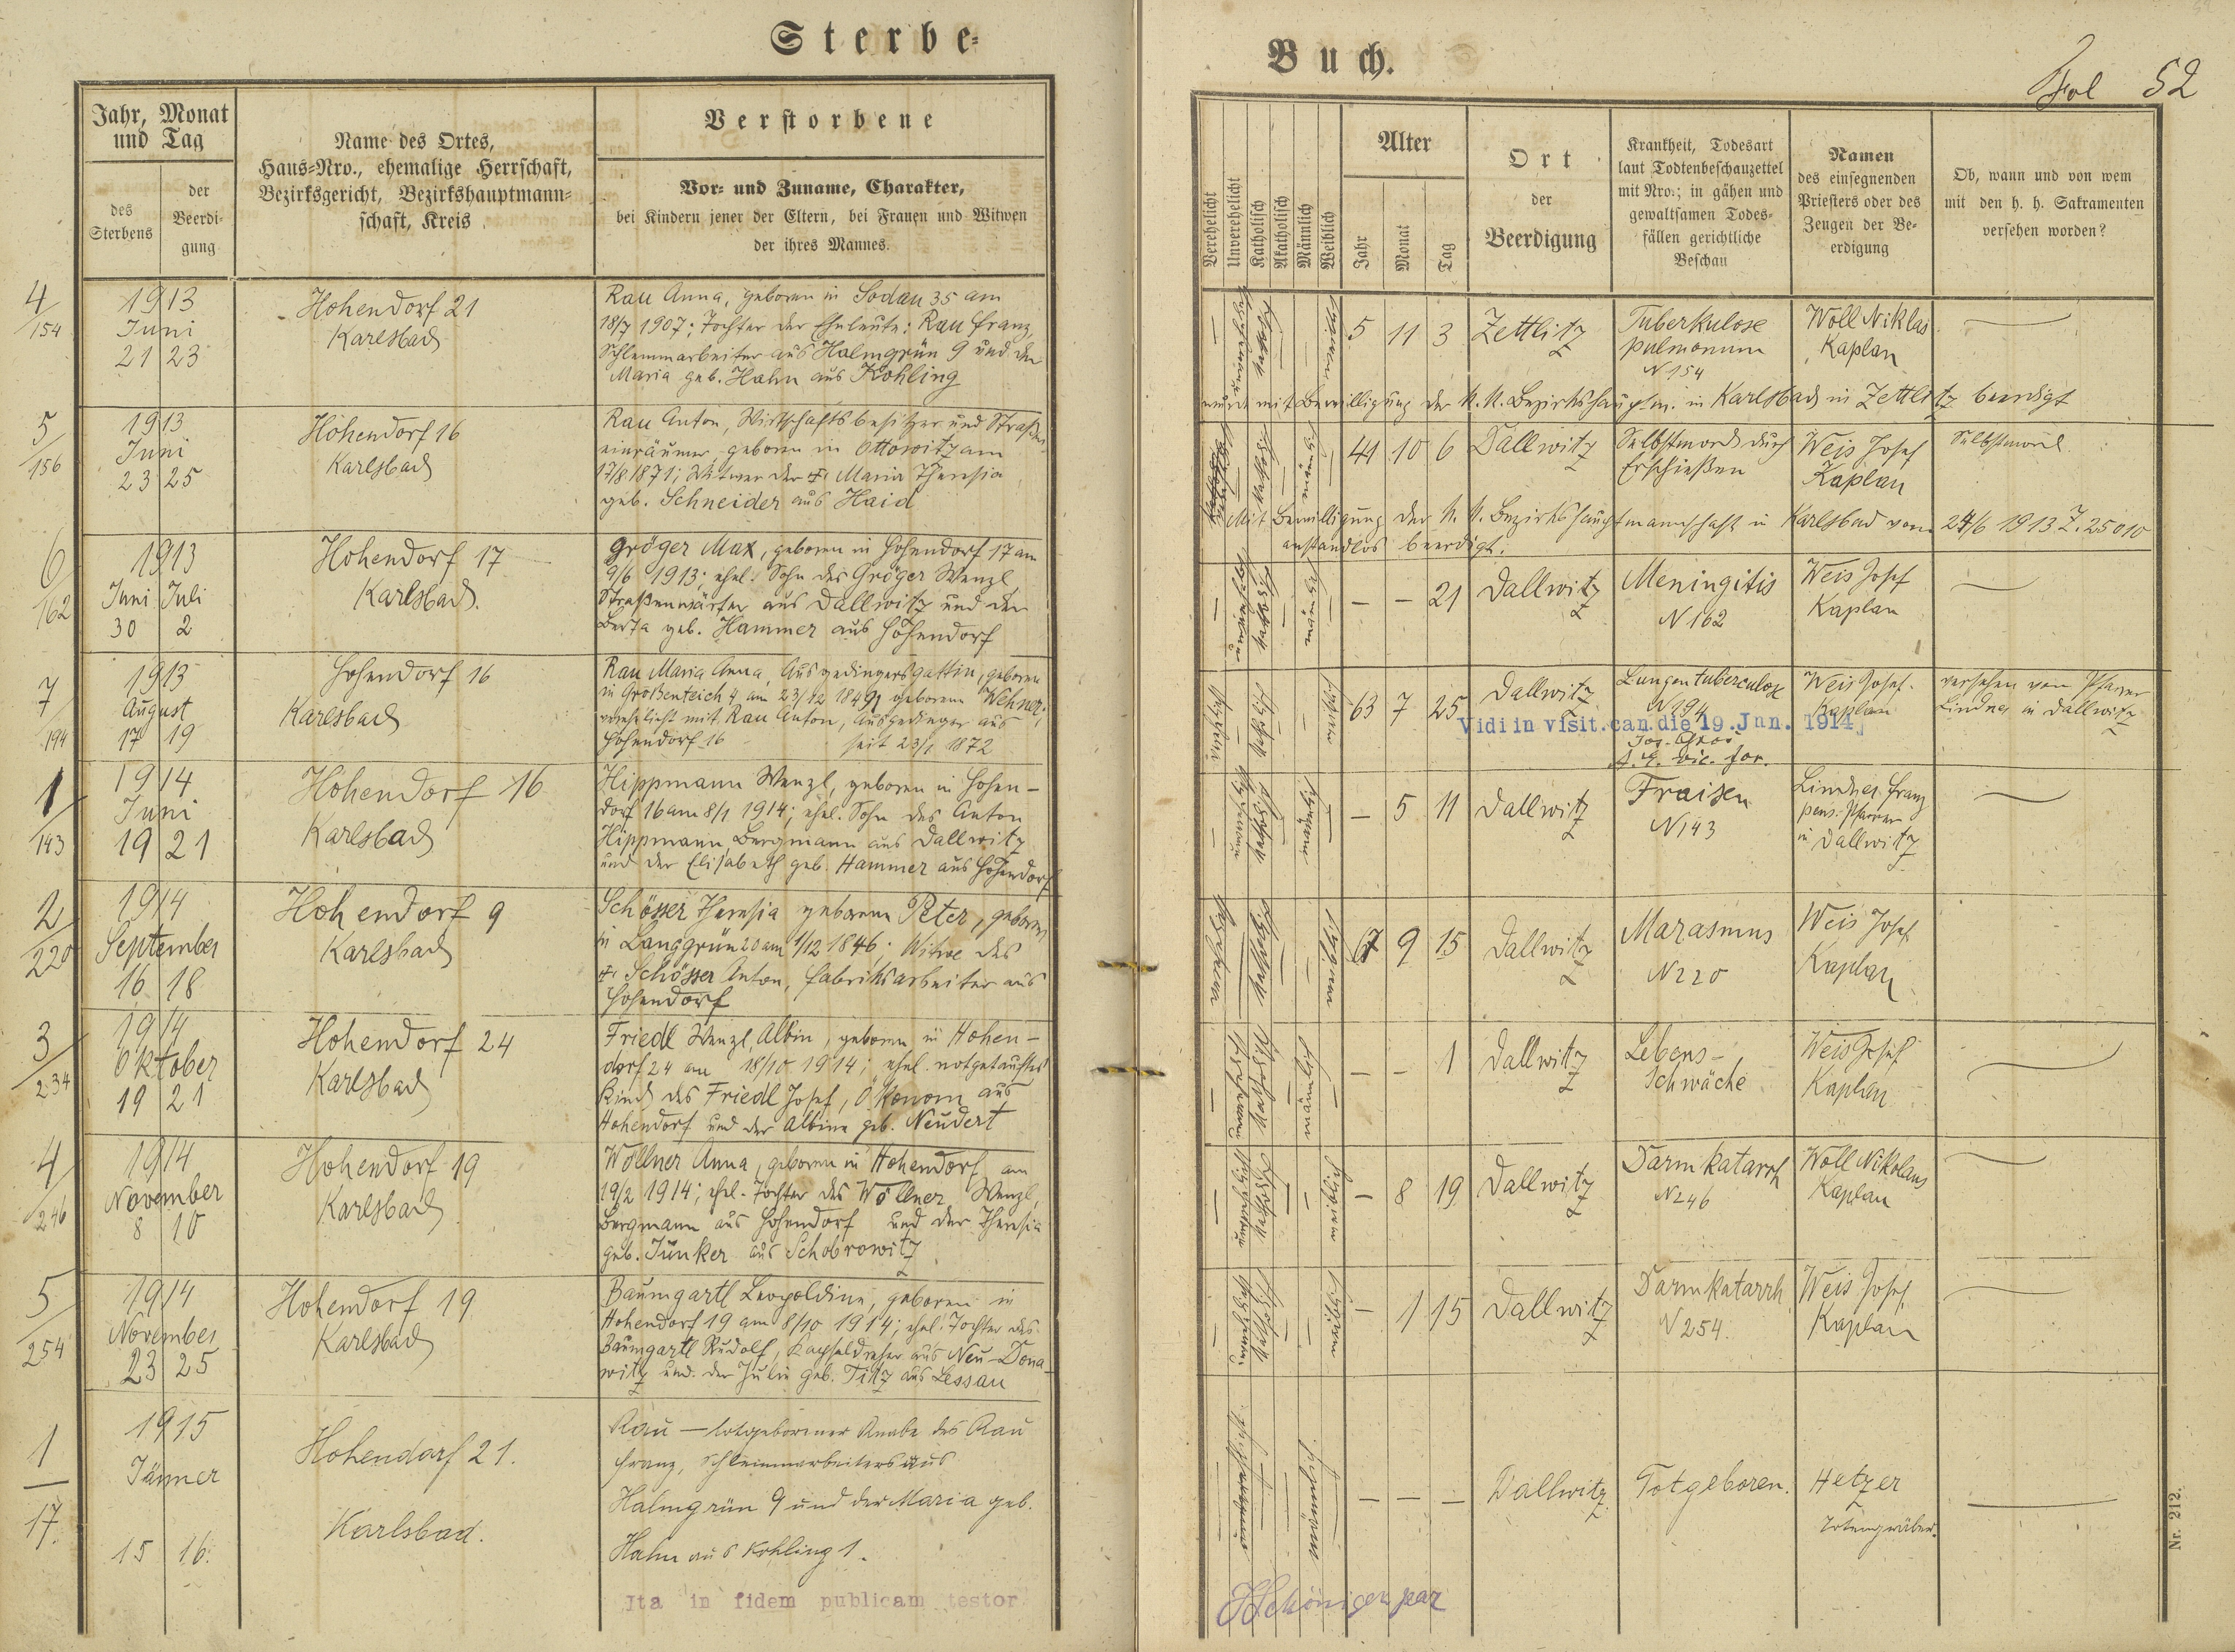 Sterbe-
Jahr, Monat
und Tag
des
Sterbens
der
Beerdi-
gung
Name des Ortes,
Haus-Nro., ehemalige Herrschaft,
Bezirksgericht, Bezirkshauptmann-
schaft, Kreis
Verstorbene
Vor- und Zuname, Charakter,
bei Kindern jener der Eltern, bei Frauen und Witwen
der ihres Mannes.
4/154
1913
Juni
21 23
Hohendorf 21
Karlsbad
Rau Anna, geboren in Sodau 35 am
18/7 1907; Tochter der Eheleute: Rau Franz,
Schlemmarbeiter aus Halmgrün 9 und der
Maria geb. Hahn aus Kohling
5/156
1913
Juni
23 25
Hohendorf 16
Karlsbad
Rau Anton, Wirtschaftsbesitzer und Straßen-
einräumer, geboren in Ottowitz am
17/8 1871; Witwer der † Maria Theresia
geb. Schneider aus Haid
6/162
1913
Juni Juli
30 2
Hohendorf 17
Karlsbad.
Gröger Max, geboren in Hohendorf 17 am
9/6 1913; ehel. Sohn des Gröger Wenzl
Straßenwärter aus Dallwitz und der
Berta geb. Hammer aus Hohendorf
7/194
1913
August
17 19
Hohendorf 16
Karlsbad
Rau Maria Anna, Ausgedingersgattin, geboren
in Großenteich 4 am 23/12 1849, geborene Wehner,
verehelicht mit Rau Anton, Ausgedinger aus
Hohendorf 16 seit 23/1 1872
1/143
1914
Juni
19 21
Hohendorf 16
Karlsbad
Hippmann Wenzl, geboren in Hohen-
dorf 16 am 8/1 1914; ehel. Sohn des Anton
Hippmann, Bergmann aus Dallwitz
und der Elisabeth geb. Hammer aus Hohendorf
2/220
1914
September
16 18
Hohendorf 9
Karlsbad
Schösser Theresia geborene Peter, geboren
in Langgrün 20 am 1/12 1846; Witwe des
† Schösser Anton, Fabriksarbeiter aus
Hohendorf
3/234
1914
Oktober
19 21
Hohendorf 24
Karlsbad
Friedl Wenzl Albin, geboren in Hohen-
dorf 24 am 18/10 1914; ehel. notgetauftes
Kind des Friedl Josef, Ökonom aus
Hohendorf und der Albine geb. Neudert
4/246
1914
November
8 10
Hohendorf 19
Karlsbad
Wöllner Anna, geboren in Hohendorf am
19/2 1914; ehel. Tochter des Wöllner Wenzl,
Bergmann aus Hohendorf und der Theresia
geb. Junker aus Schobrowitz
5/254
1914
November
23 25
Hohendorf 19
Karlsbad
Baumgartl Leopoldine, geboren in
Hohendorf 19 am 8/10 1914; ehel. Tochter des
Baumgartl Rudolf, Kapseldreher aus Neu-Dona-
witz und der Julie geb. Titz aus Lessau
1/17.
1915
Jänner
15 16.
Hohendorf 21.
Karlsbad.
Rau — totgeborener Knabe des Rau
Franz, Schlemmarbeiters aus
Halmgrün 9 und der Maria geb.
Hahn aus Kohling 1.
Ita in fidem publicam testor
Buch.
Fol 52
Verehelicht
Unverehelicht
Katholisch
Akatholisch
Männlich
Weiblich
Alter
Jahr
Monat
Tag
Ort
der
Beerdigung
Krankheit, Todesart
laut Todtenbeschauzettel
mit Nro.; in gähen und
gewaltsamen Todes-
fällen gerichtliche
Beschau
Namen
des einsegnenden
Priesters oder des
Zeugen der Be-
erdigung
Ob, wann und von wem
mit den h. h. Sakramenten
versehen worden?
5 11 3 Zettlitz
Tuberkulose
pulmonum
N 154
Woll Niklas
Kaplan
wurde mit Bewilligung der k. k. Bezirkshauptm. in Karlsbad in Zettlitz beerdigt
41 10 6 Dallwitz
Selbstmord durch
Erschießen
Weis Josef
Kaplan
Selbstmord
Mit Bewilligung der k. k. Bezirkshauptmannschaft in Karlsbad vom 24/6 1913 Z. 25010
anstandlos beerdigt.
— — 21 Dallwitz
Meningitis
N 162
Weis Josef
Kaplan
63 7 25 Dallwitz
Lungentuberculose
N 194
Weis Josef.
Kaplan
versehen vom Pfarrer
Lindner in Dallwitz
Vidi in visit. can. die 19. Jun. 1914
— 5 11 Dallwitz
Fraisen
N 143
Lindner Franz
pens. Pfarrer
in Dallwitz
67 9 15 Dallwitz
Marasmus
N 220
Weis Josef
Kaplan
— — 1 Dallwitz
Lebens-
schwäche
Weis Josef
Kaplan
— 8 19 Dallwitz
Darmkatarrh
N 246
Woll Nikolaus
Kaplan
— 1 15 Dallwitz
Darmkatarrh
N 254.
Weis Josef
Kaplan
— — — Dallwitz.
Totgeboren.
Hetzer
Totengräber.
Nr. 212.